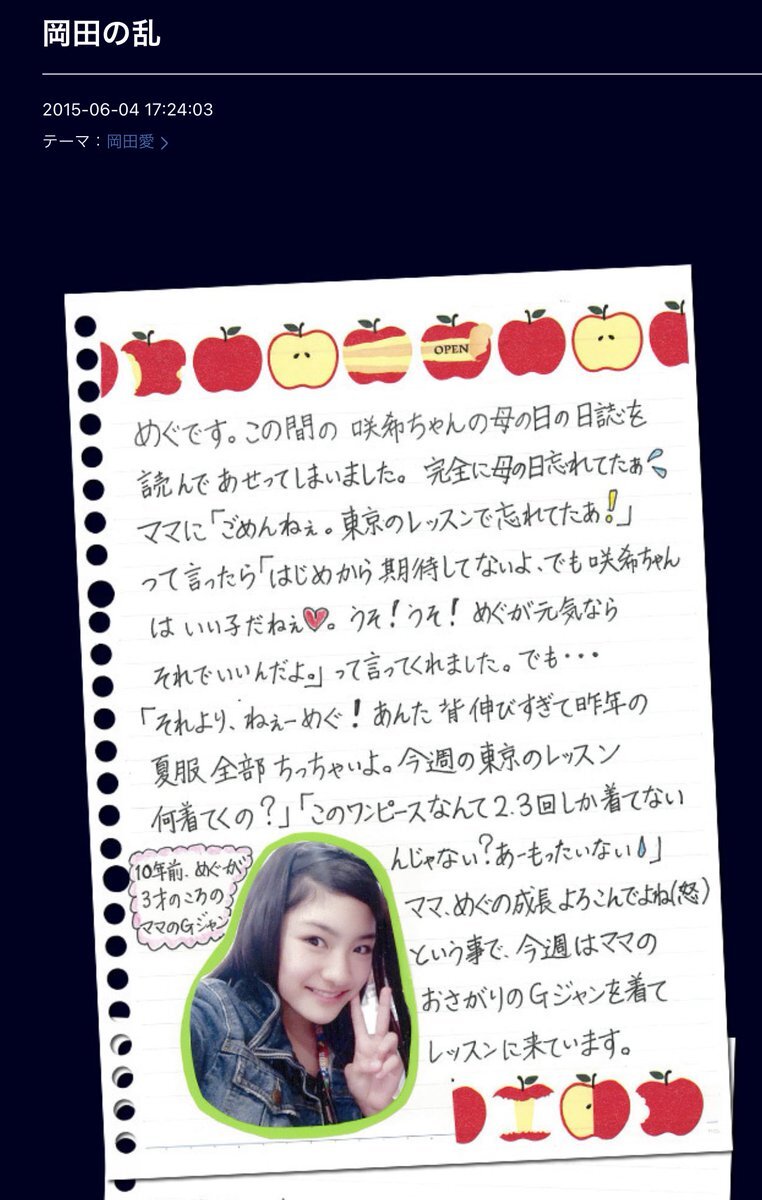 岡田の乱
2015-06-04 17:24:03
テーマ：岡田愛 >
OPEN
めぐです。この間の 咲希ちゃんの母の日の日誌を
読んで あせってしまいました。 完全に母の日忘れてたぁ
ママに「ごめんねぇ。東京のレッスンで忘れてたあ!」
って言ったら「はじめから期待してないよ、でも咲希ちゃん
は いい子だねぇ♥。うそ！うそ！ めぐが元気なら
それでいいんだよ。」って言ってくれました。でも・・・
「それより、ねぇーめぐ！あんた 背伸びすぎて昨年の
夏服 全部 ちっちゃいよ。今週の東京のレッスン
何着てくの？」「このワンピースなんて2.3回しか着てない
んじゃない？あーもったいない」
ママ、めぐの成長よろこんでよね(怒)
という事で、今週はママの
おさがりのGジャンを着て
レッスンに来ています。
10年前、めぐが
3才のころの
ママのGジャン